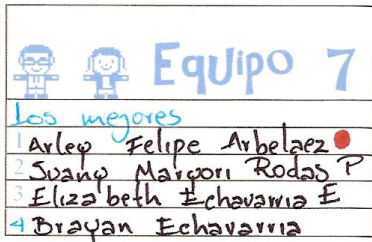 Equipo 7
Los mejores
1 Arley Felipe Arbelaez
2 Suany Maryori Rodas P
3 Elizabeth Echavarria E
4 Brayan Echavarria